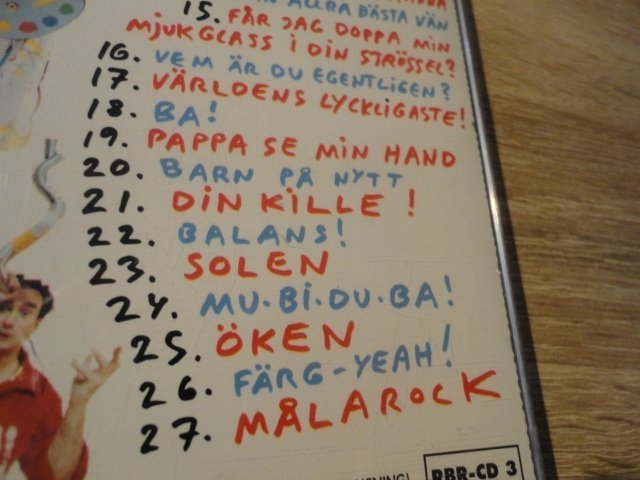 ALLRA BÄSTA VÄN
15. FÅR JAG DOPPA MIN
MJUKGLASS I DIN STRÖSSEL?
16. VEM ÄR DU EGENTLIGEN?
17. VÄRLDENS LYCKLIGASTE!
18. BA!
19. PAPPA SE MIN HAND
20. BARN PÅ NYTT
21. DIN KILLE!
22. BALANS!
23. SOLEN
24. MU·BI·DU·BA!
25. ÖKEN
26. FÄRG-YEAH!
27. MÅLAROCK
RBR-CD 3